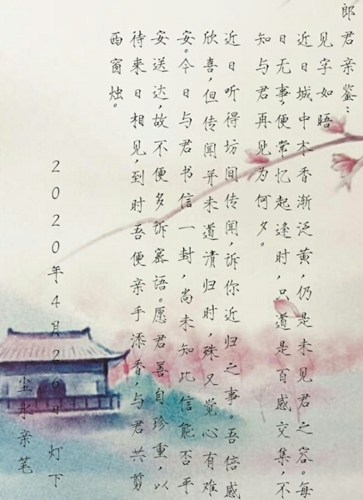 郎君亲鉴：
见字如晤
近日城中木香渐泛黄，仍是未见君之容。每
日无事，便常忆起逢时，只道是百感交集，不
知与君再见为何夕。
近日听得坊间传闻，诉你近归之事。吾倍感
欣喜，但传闻并未道清归时，殊又觉心有难
安。今日与君书信一封，尚未知此信能否平
安送达，故不便多诉蜜语。愿君善自珍重，以
待来日相见，到时吾便亲手添香，与君共剪
西窗烛。
2020年4月26日灯下
尘水亲笔